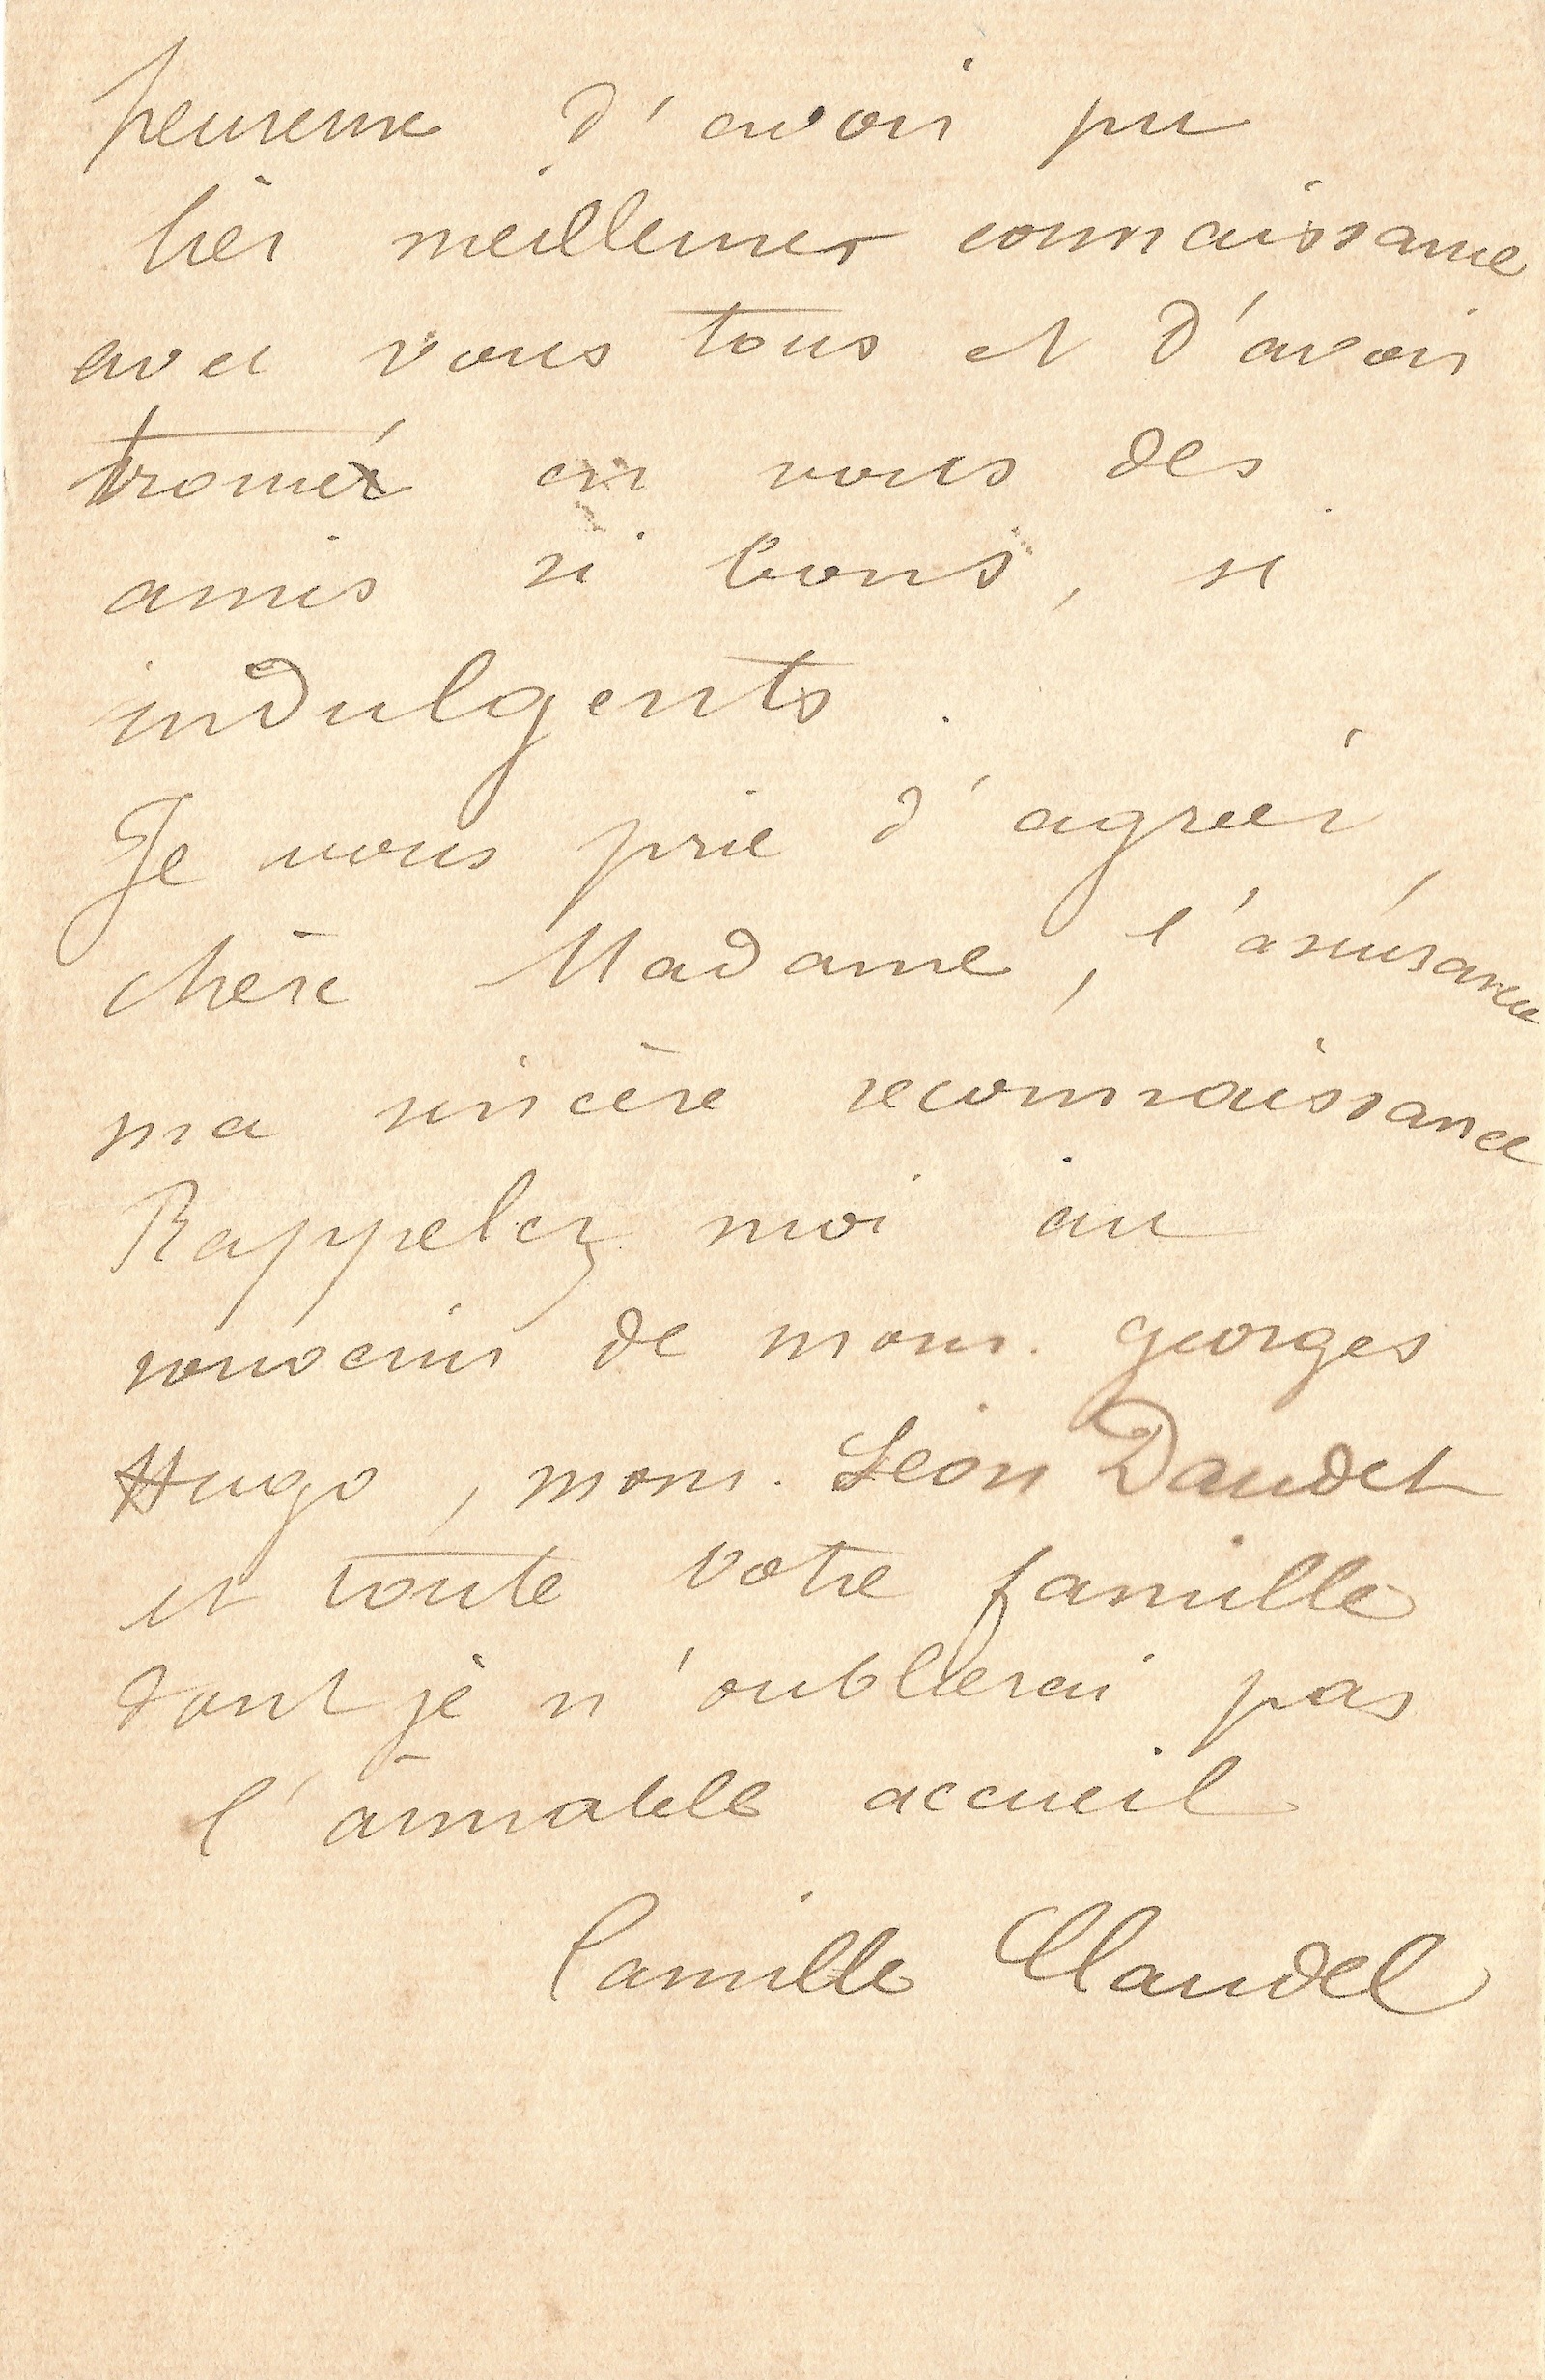 heureuse d'avoir pu
lier meilleure connaissance
avec vous tous et d'avoir
trouvé en vous des
amis si bons, si
indulgents.
Je vous prie d'agréer,
chère Madame, l'assurance
ma sincère reconnaissance
Rappelez moi au
souvenir de mons. Georges
Hugo, mons. Léon Daudet
et toute votre famille
dont je n'oublierai pas
l'aimable accueil
Camille Claudel